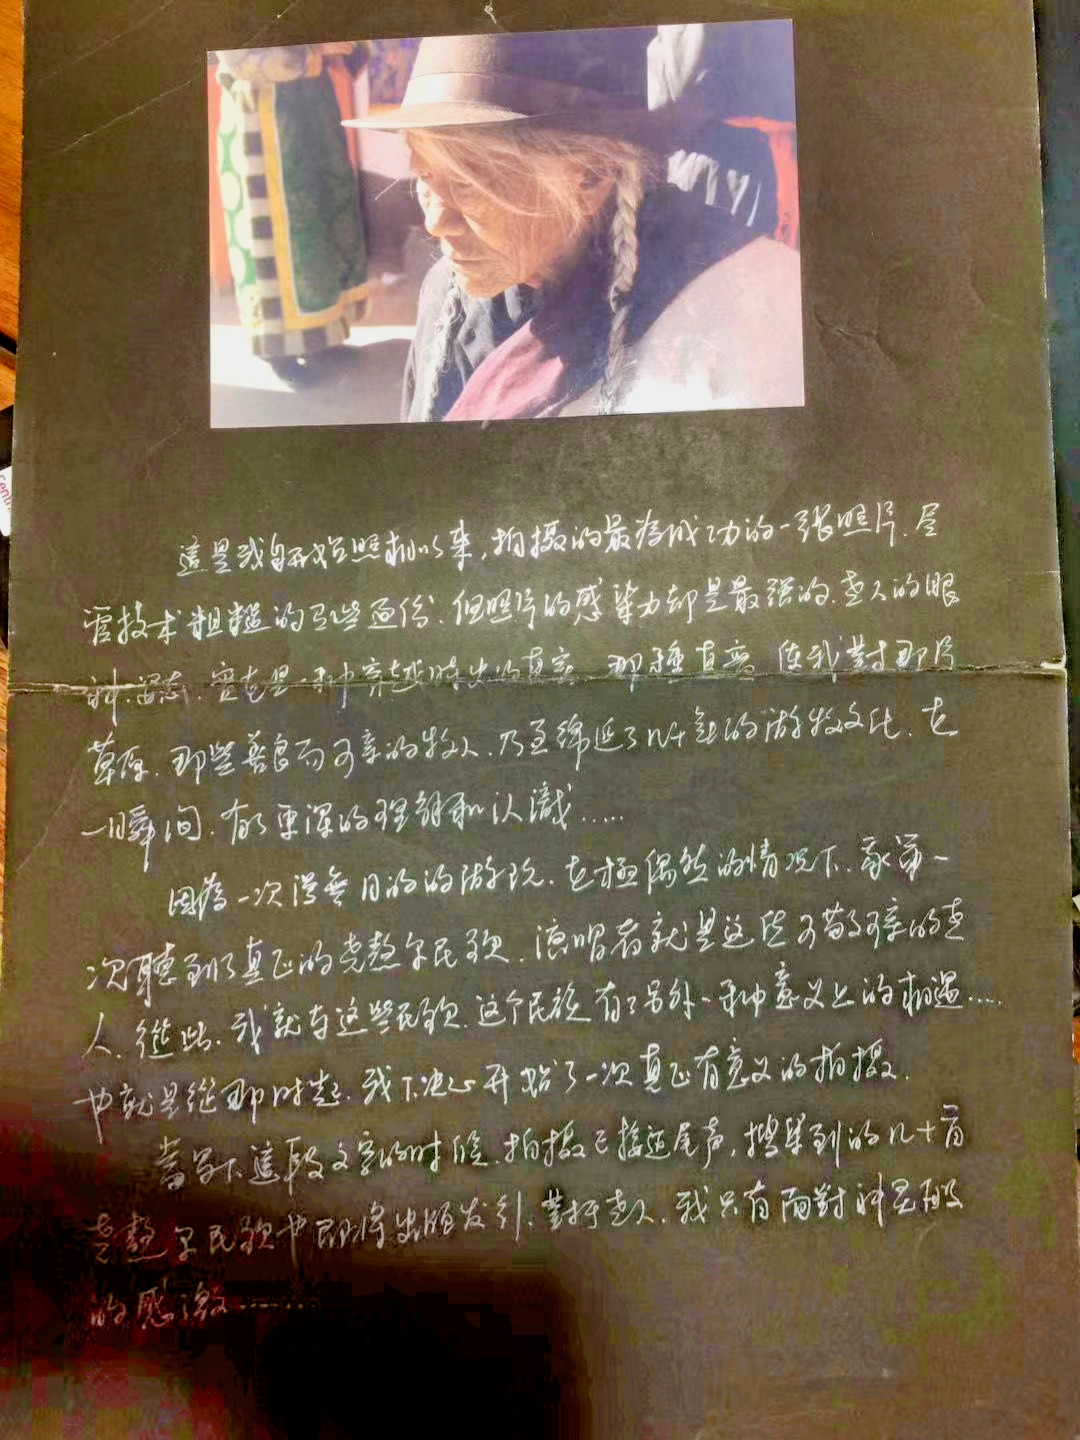 這是我自開始照相以来,拍摄的最為成功的一張照片.尽
管技术粗糙的有些过份.但照片的感染力却是最强的.老人的眼
神.一种穿越時的真实.那種真实.使我對那片
草原.那些善良而可亲的牧人.乃至綿延了几千年的游牧文化.在
一瞬间.有了更深的理解和认識.....
因為一次漫無目的的游玩.在極偶然的情况下.我第一
次聽到了真正的尧熬尔民歌.演唱者就是这些可敬可亲的老
人.從此.我就与这些民歌.这个民族.有了另外一种意义上的相遇.....
也就是從那时起.我下决心开始了一次真正有意义的拍摄.
當写下這段文字的时候.拍摄已接近尾声,搜集到的几十首
尧熬尔民歌也即将出版发行.對于老人.我只有面對神灵般
的感激......